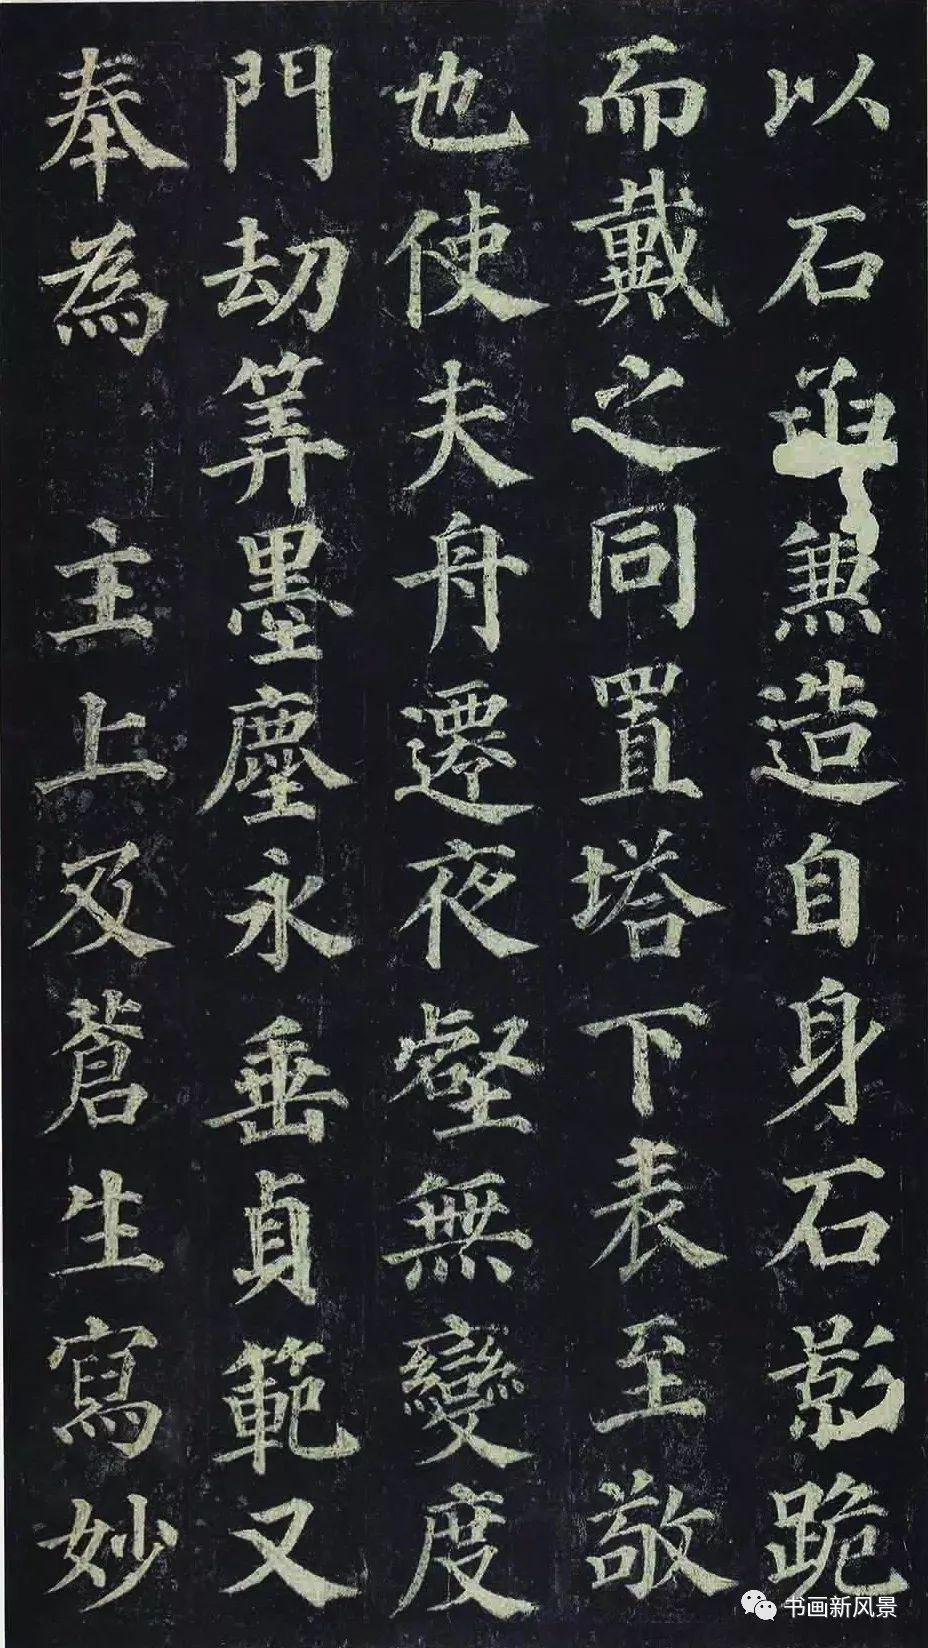 以石兼造自身石影跪
而戴之同置塔下表至敬
也使夫舟遷夜壑無變度
門刼筭墨塵永垂貞範又
奉為主上及蒼生寫妙
书画新风景